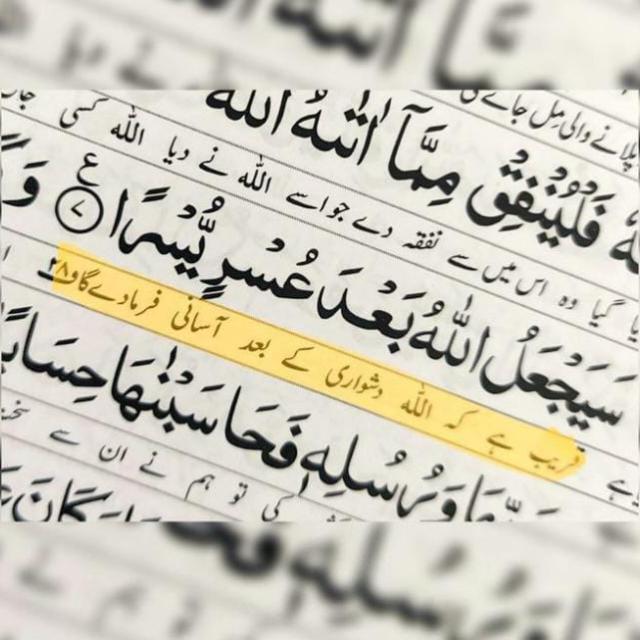 پلانے والی مل جائے گی
فَلْيُنْفِقْ مِمَّآ اٰتٰىهُ اللّٰهُ
گیا وہ اس میں سے نفقہ دے جو اسے اللہ نے دیا اللہ کسی جان
سَيَجْعَلُ اللّٰهُ بَعْدَ عُسْرٍ يُّسْرًا ۝٧ ع
قریب ہے کہ اللہ دشواری کے بعد آسانی فرمادے گا و٢٨
وَرُسُلِهٖ فَحَاسَبْنٰهَا حِسَابًا
تو ہم نے ان سے سخت